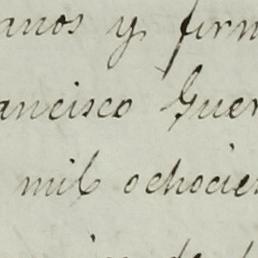 anos y firm
ancisco Guer
mil ochocien